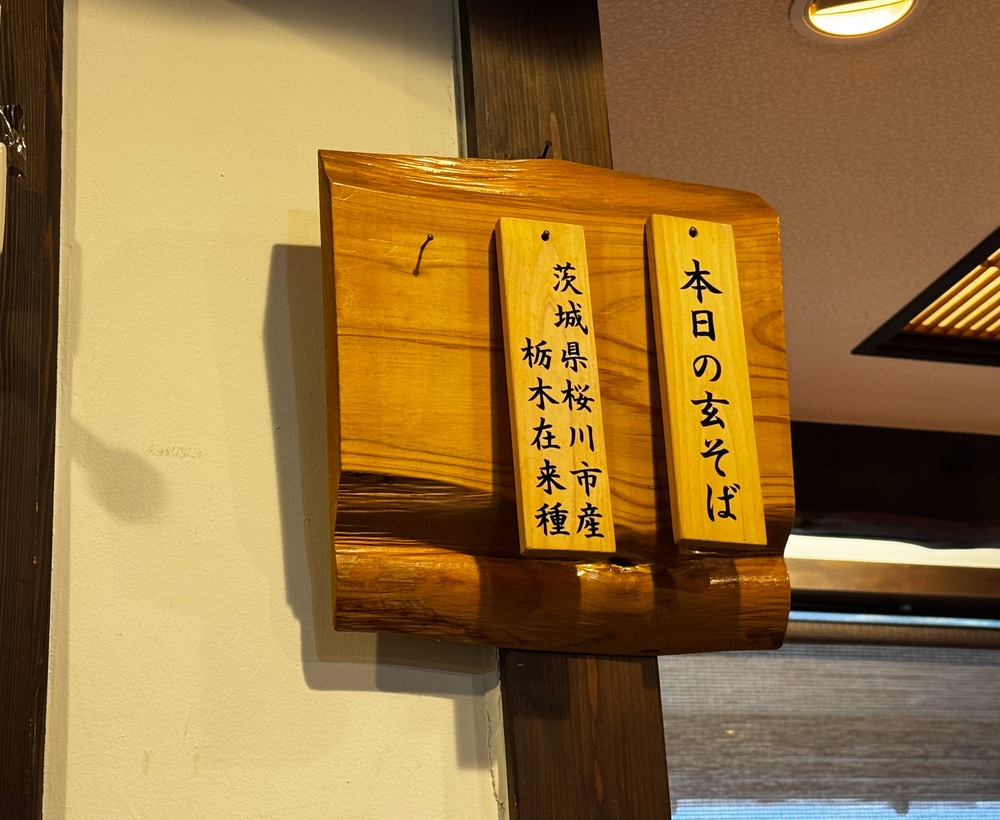 本日の玄そば
茨城県桜川市産
栃木在来種